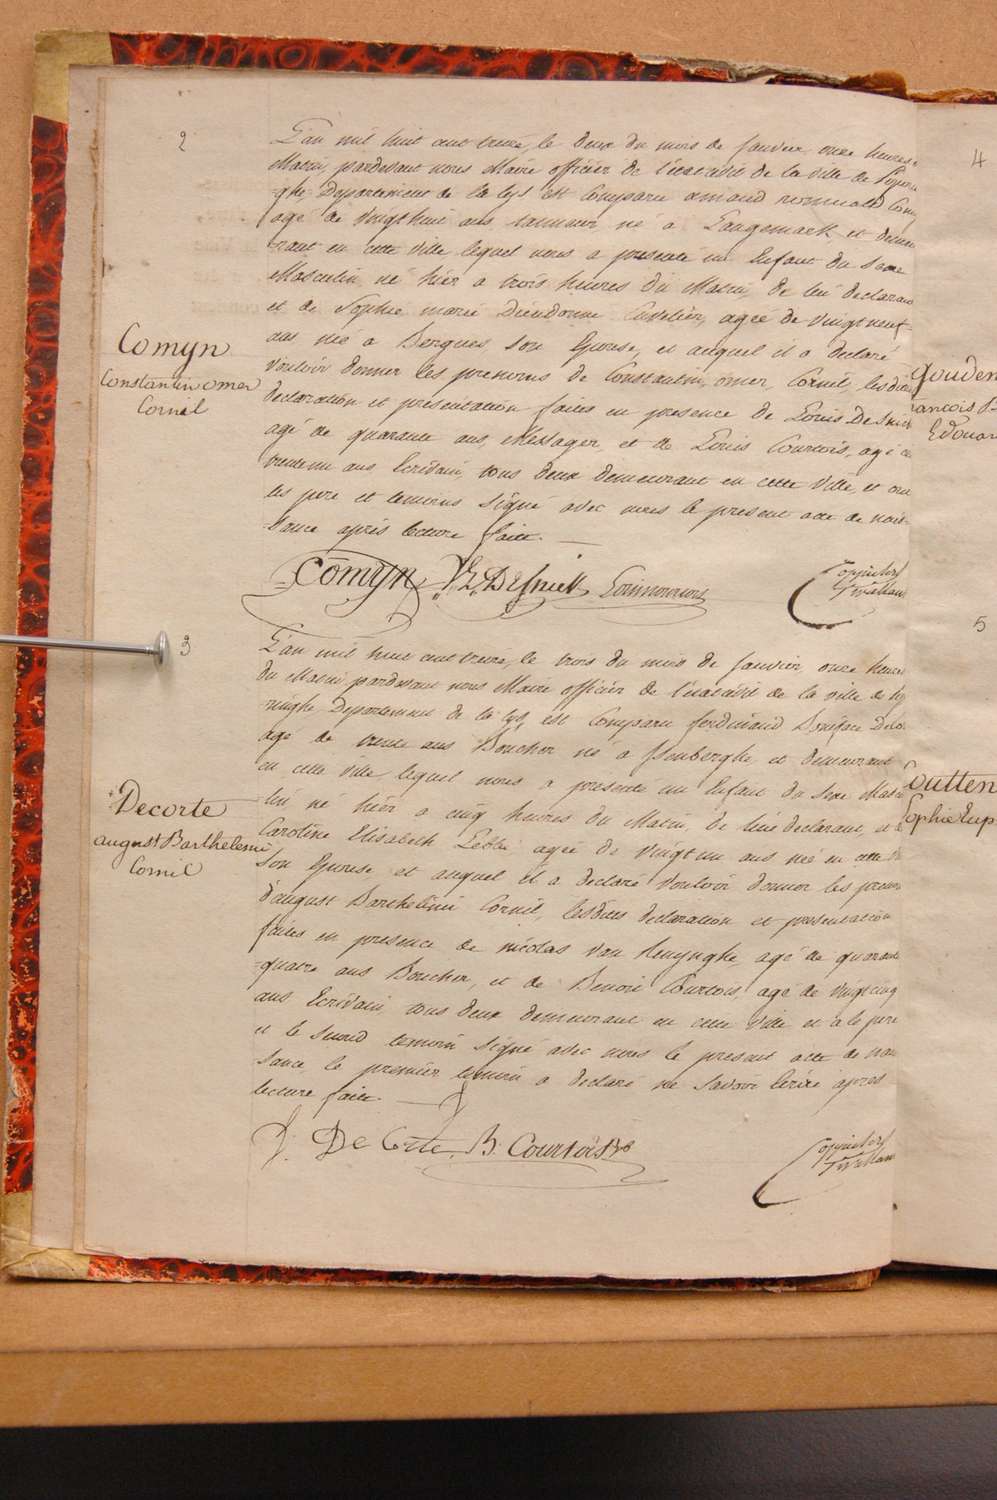 2
L'an mil huit cent treize, le deux du mois de janvier onze heures
Matin, pardevant nous Maire officier de l'état civil de la ville de Poperin
ghe, Departement de la Lys est Comparu amand romuald Comyn
agé de vingthuit ans tanneur né à Langemarck et demeu
rant en cette ville lequel nous a presenté un Enfant du Sexe
Masculin né hier a trois heures du Matin de lui declarant
et de Sophie marie Dieudonne Cuvelier, agée de vingt neuf
ans née a Bergues Son Epouse, et auquel il a declaré
vouloir donner les prenoms de Constantin, omer, Cornil, lesdites
declaration et présentation faites en presence de Louis De Snick
agé de quarante ans, Messager, et de Louis Courtois, agé de
trentun ans Ecrivain, tous deux demeurant en cette Ville et ont
les pere et temoins signé avec nous le present acte de nais
sance après lecture faite.
Comyn
Constantin omer
Cornil
Comyn L. DeSnick
3
L'an mil huit cent treize, le trois du mois de janvier, onze heures
du Matin pardevant nous Maire officier de l'état civil de la ville de Po
ringhe Departement de la Lys, est Comparu ferdinand Boniface Deco
agé de trente ans Boucher né a Isenberghe et demeurant
en cette ville, lequel nous a presenté un Enfant du Sexe Mascu
lin né hier a cinq heures du Matin, de lui declarant, et de
Caroline Elisabeth Lebbe agée de vingt un ans née en cette
Son Epouse et auquel il a declaré vouloir donner les prenoms
d'august Barthelémi Cornil, lesdites declaration et presentation
faites en presence de nicolas van heuynghe, agé de quarante
quatre ans Boucher, et de Benoit Courtois, agé de vingtcinq
ans Ecrivain, tous deux demeurant en cette Ville et a le pere
et le second temoin signé avec nous le present acte de nais
sance le premier temoin a declaré ne Savoir Ecrire après
lecture faite.
Decorte
august Barthelemi
Cornil
DeCorte B. Courtois
4
Gouden
rancois
Edouar
5
Coutten
ophie Eup